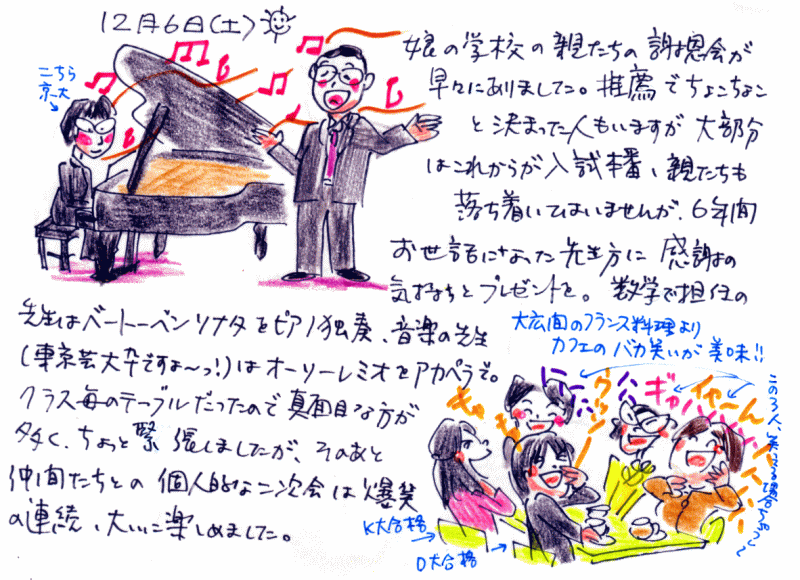 12月6日(土)
こちら
京大
娘の学校の親たちの謝恩会が
早々にありました。推薦でちょこちょこ
と決まった人もいますが大部分
はこれからが入試本番、親たちも
落ち着いてはいませんが、6年間
お世話になった先生方に感謝の
気持ちとプレゼントを。数学で担任の
先生はベートーベンソナタをピアノ独奏、音楽の先生
(東京芸大卒ですよ〜っ!)はオーソーレミオをアカペラで。
クラス毎のテーブルだったので真面目な方が
多く、ちょっと緊張しましたが、そのあと
仲間たちとの個人的な二次会は爆笑
の連続、大いに楽しめました。
大広間のフランス料理より
カフェのバカ笑いが美味!!
K大合格
O大合格